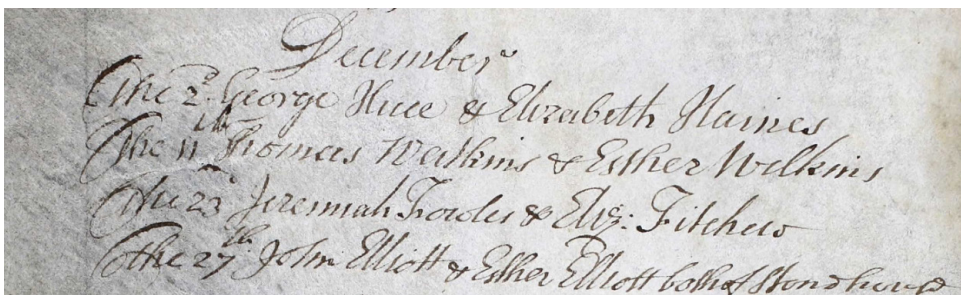 December
The 2d. George Huce & Elizabeth Haines
The 11th Thomas Watkins & Esther Wilkins
The 23d Jeremiah Fowles & Eliz: Fitchew
The 27th. John Elliott & Esther Elliott both of